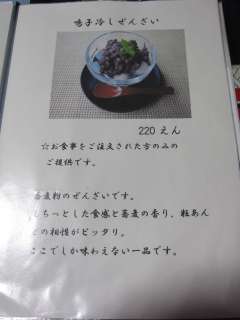 鳴子冷しぜんざい
220えん
☆お食事をご注文された方のみの
ご提供です。
蕎麦粉のぜんざいです。
もちっとした食感と蕎麦の香り、粒あん
との相性がピッタリ。
ここでしか味わえない一品です。